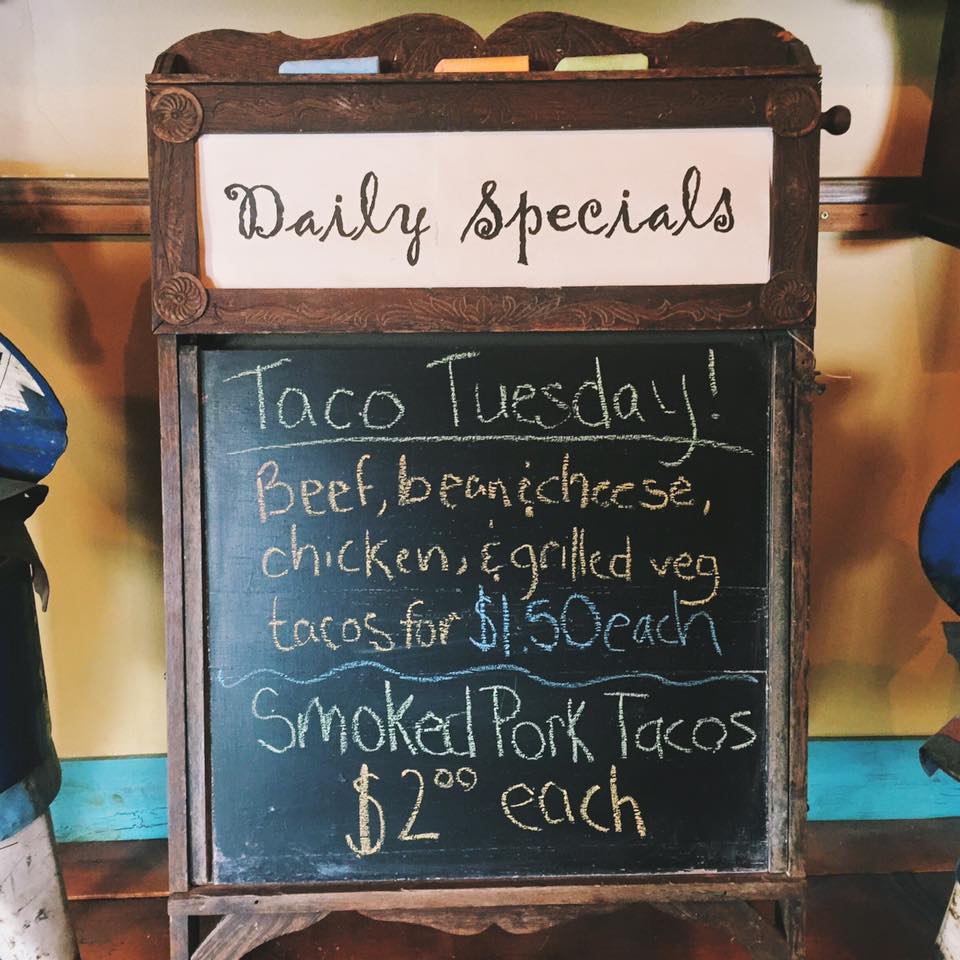 Daily Specials
Taco Tuesday!
Beef, bean & cheese,
chicken, & grilled veg
tacos for $1.50 each
Smoked Pork Tacos
$2⁰⁰ each